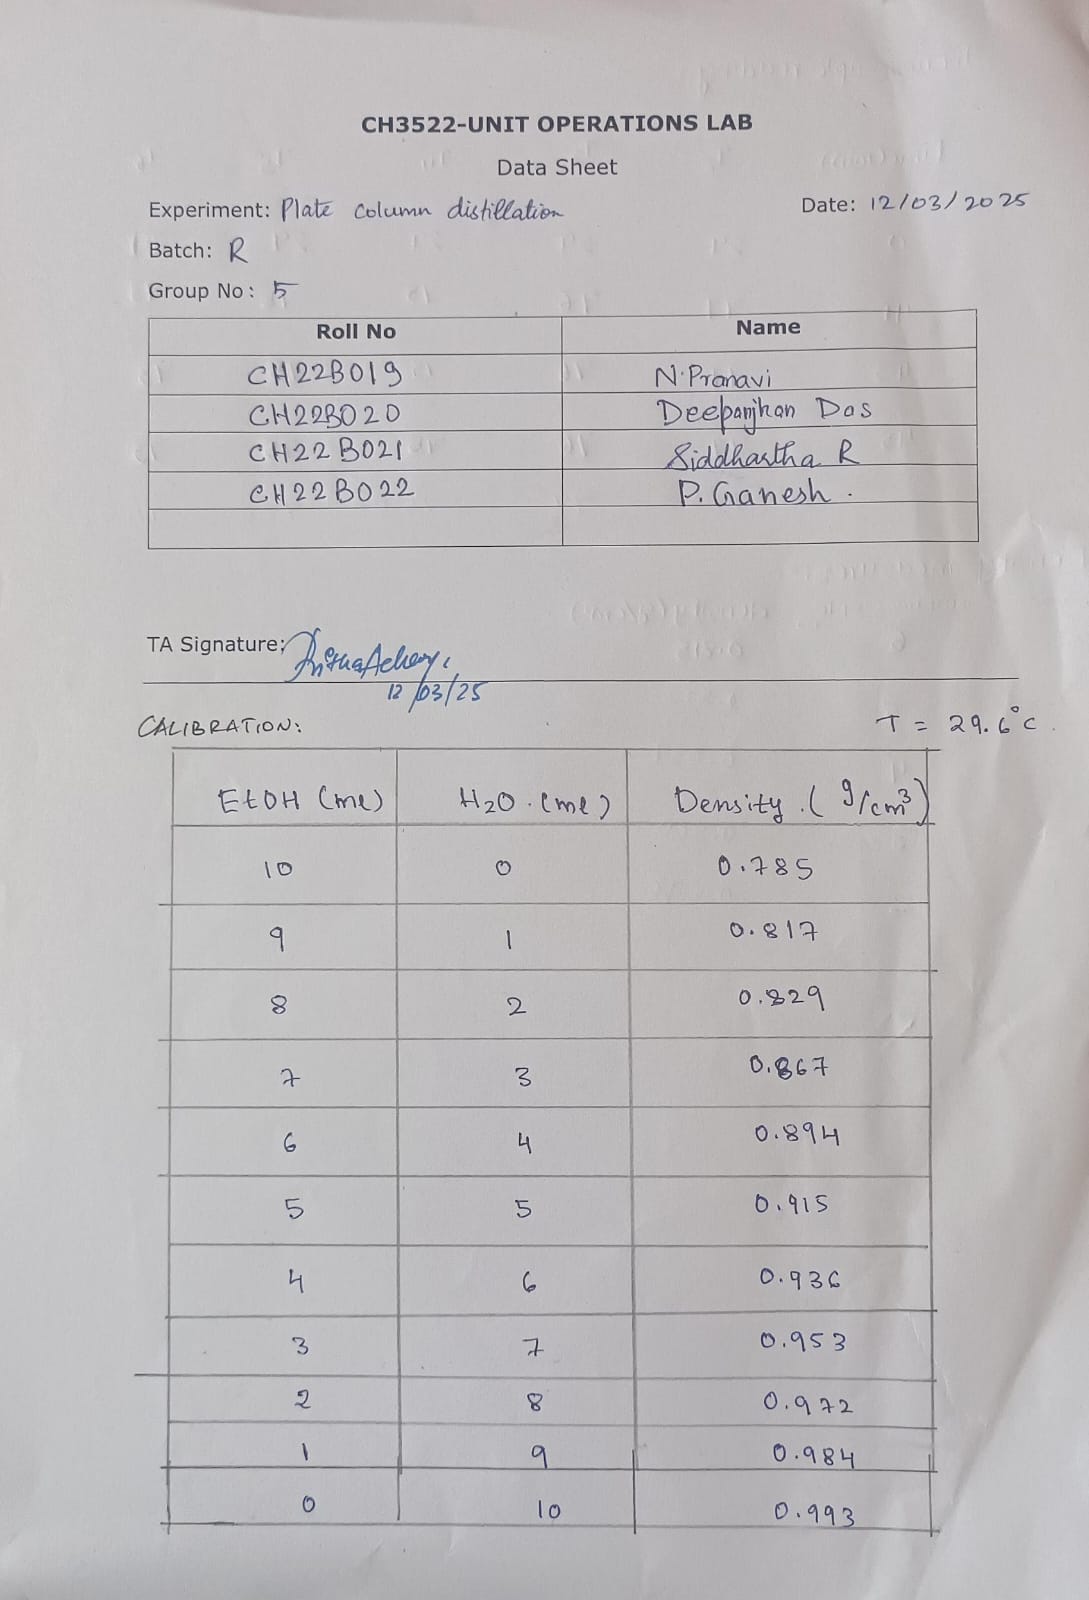 CH3522-UNIT OPERATIONS LAB
Data Sheet
Experiment: Plate column distillation Date: 12/03/2025
Batch: R
Group No: 5
Roll No Name
CH22B019 N.Pranavi
CH22B020 Deepanjhan Das
CH22B021 Siddhartha R
CH22B022 P. Ganesh.
TA Signature:
12/03/25
CALIBRATION: T = 29.6°C.
EtOH (ml) H2O.(ml) Density.(g/cm³)
10 0 0.785
9 1 0.817
8 2 0.829
7 3 0.867
6 4 0.894
5 5 0.915
4 6 0.936
3 7 0.953
2 8 0.972
1 9 0.984
0 10 0.993